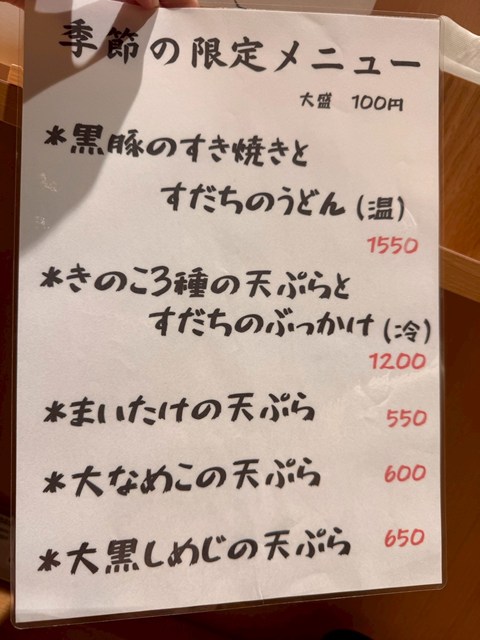 季節の限定メニュー
大盛 100円
*黒豚のすき焼きと
すだちのうどん(温)
1550
*きのこ3種の天ぷらと
すだちのぶっかけ(冷)
1200
*まいたけの天ぷら 550
*大なめこの天ぷら 600
*大黒しめじの天ぷら 650